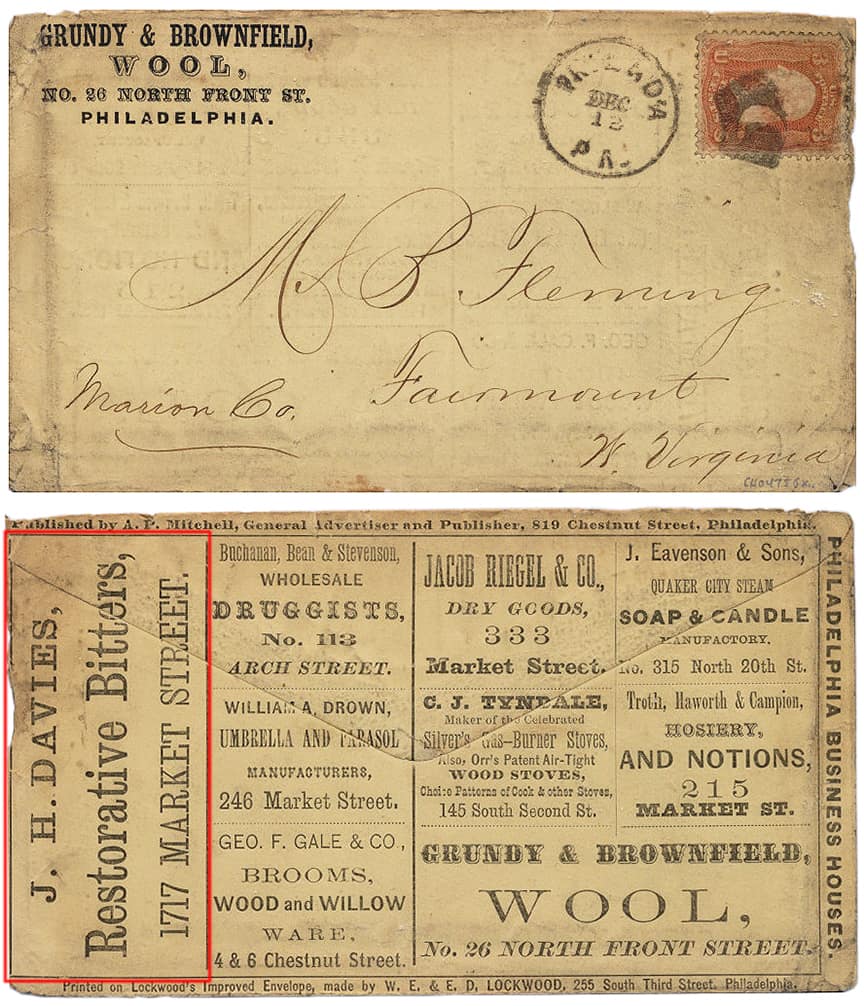 GRUNDY & BROWNFIELD,
WOOL,
NO. 26 NORTH FRONT ST.
PHILADELPHIA.
PHILADA
DEC
12
PA.
U 3
Mr B Fleming
Fairmount
Marion Co.
W. Virginia
Published by A. P. Mitchell, General Advertiser and Publisher, 819 Chestnut Street, Philadelphia.
J. H. DAVIES,
Restorative Bitters,
1717 MARKET STREET.
Buchanan, Bean & Stevenson,
WHOLESALE
DRUGGISTS,
No. 113
ARCH STREET.
WILLIAM A. DROWN,
UMBRELLA AND PARASOL
MANUFACTURERS,
246 Market Street.
GEO. F. GALE & CO.,
BROOMS,
WOOD and WILLOW
WARE,
4 & 6 Chestnut Street.
JACOB RIEGEL & CO.,
DRY GOODS,
333
Market Street.
C. J. TYNDALE,
Maker of the Celebrated
Silver's Gas-Burner Stoves,
Also, Orr's Patent Air-Tight
WOOD STOVES,
Choice Patterns of Cook & other Stoves,
145 South Second St.
J. Eavenson & Sons,
QUAKER CITY STEAM
SOAP & CANDLE
MANUFACTORY.
No. 315 North 20th St.
Troth, Haworth & Campion,
HOSIERY,
AND NOTIONS,
215
MARKET ST.
GRUNDY & BROWNFIELD,
WOOL,
No. 26 NORTH FRONT STREET.
PHILADELPHIA BUSINESS HOUSES.
Printed on Lockwood's Improved Envelope, made by W. E. & E. D. LOCKWOOD, 255 South Third Street. Philadelphia.